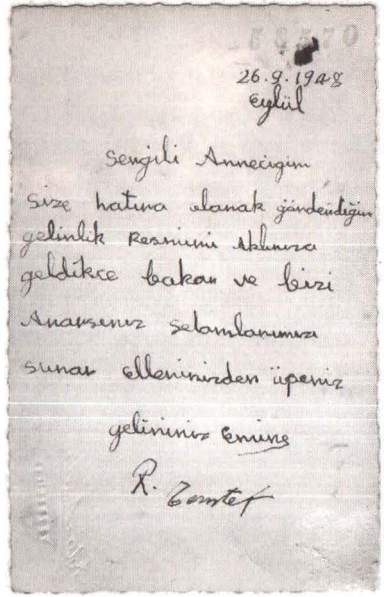 58570
26.9.1948
Eylül
Sevgili Anneciğim
Size hatıra olarak gönderdiğim
gelinlik resmimi aklınıza
geldikce bakar ve bizi
Anarsınız selamlarımızı
sunar ellerinizden üperiz
gelininiz Emine
R.